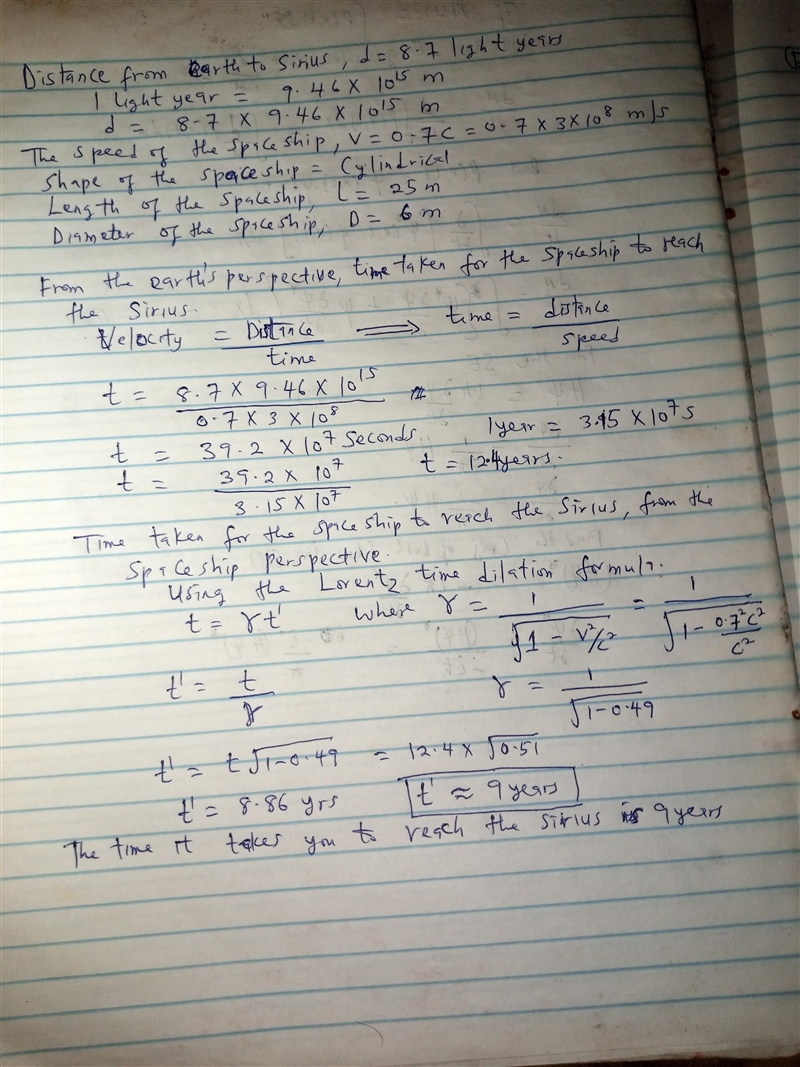 Distance from Earth to Sirius, d = 8.7 light years
1 Light year = 9.46 X 10^15 m
d = 8.7 X 9.46 X 10^15 m
The speed of the spaceship, V = 0.7C = 0.7 X 3X10^8 m/s
Shape of the spaceship = Cylindrical
Length of the spaceship, L = 25 m
Diameter of the spaceship, D = 6 m
From the earth's perspective, time taken for the spaceship to reach
the Sirius.
Velocity = Distance/time ⟹ time = distance/speed
t = (8.7 X 9.46 X 10^15)/(0.7 X 3 X 10^8)
t = 39.2 X 10^7 seconds, 1 year = 3.15 X 10^7 s
t = (39.2 X 10^7)/(3.15 X 10^7) t = 12.4 years.
Time taken for the spaceship to reach the Sirius, from the
Spaceship perspective.
Using the Lorentz time dilation formula.
t = γt' where γ = 1/√(1 - V²/c²) = 1/√(1 - 0.7²c²/c²)
t' = t/γ γ = 1/√(1-0.49)
t' = t√(1-0.49) = 12.4 X √0.51
t' = 8.86 yrs t' ≈ 9 years
The time it takes you to reach the Sirius is 9 years